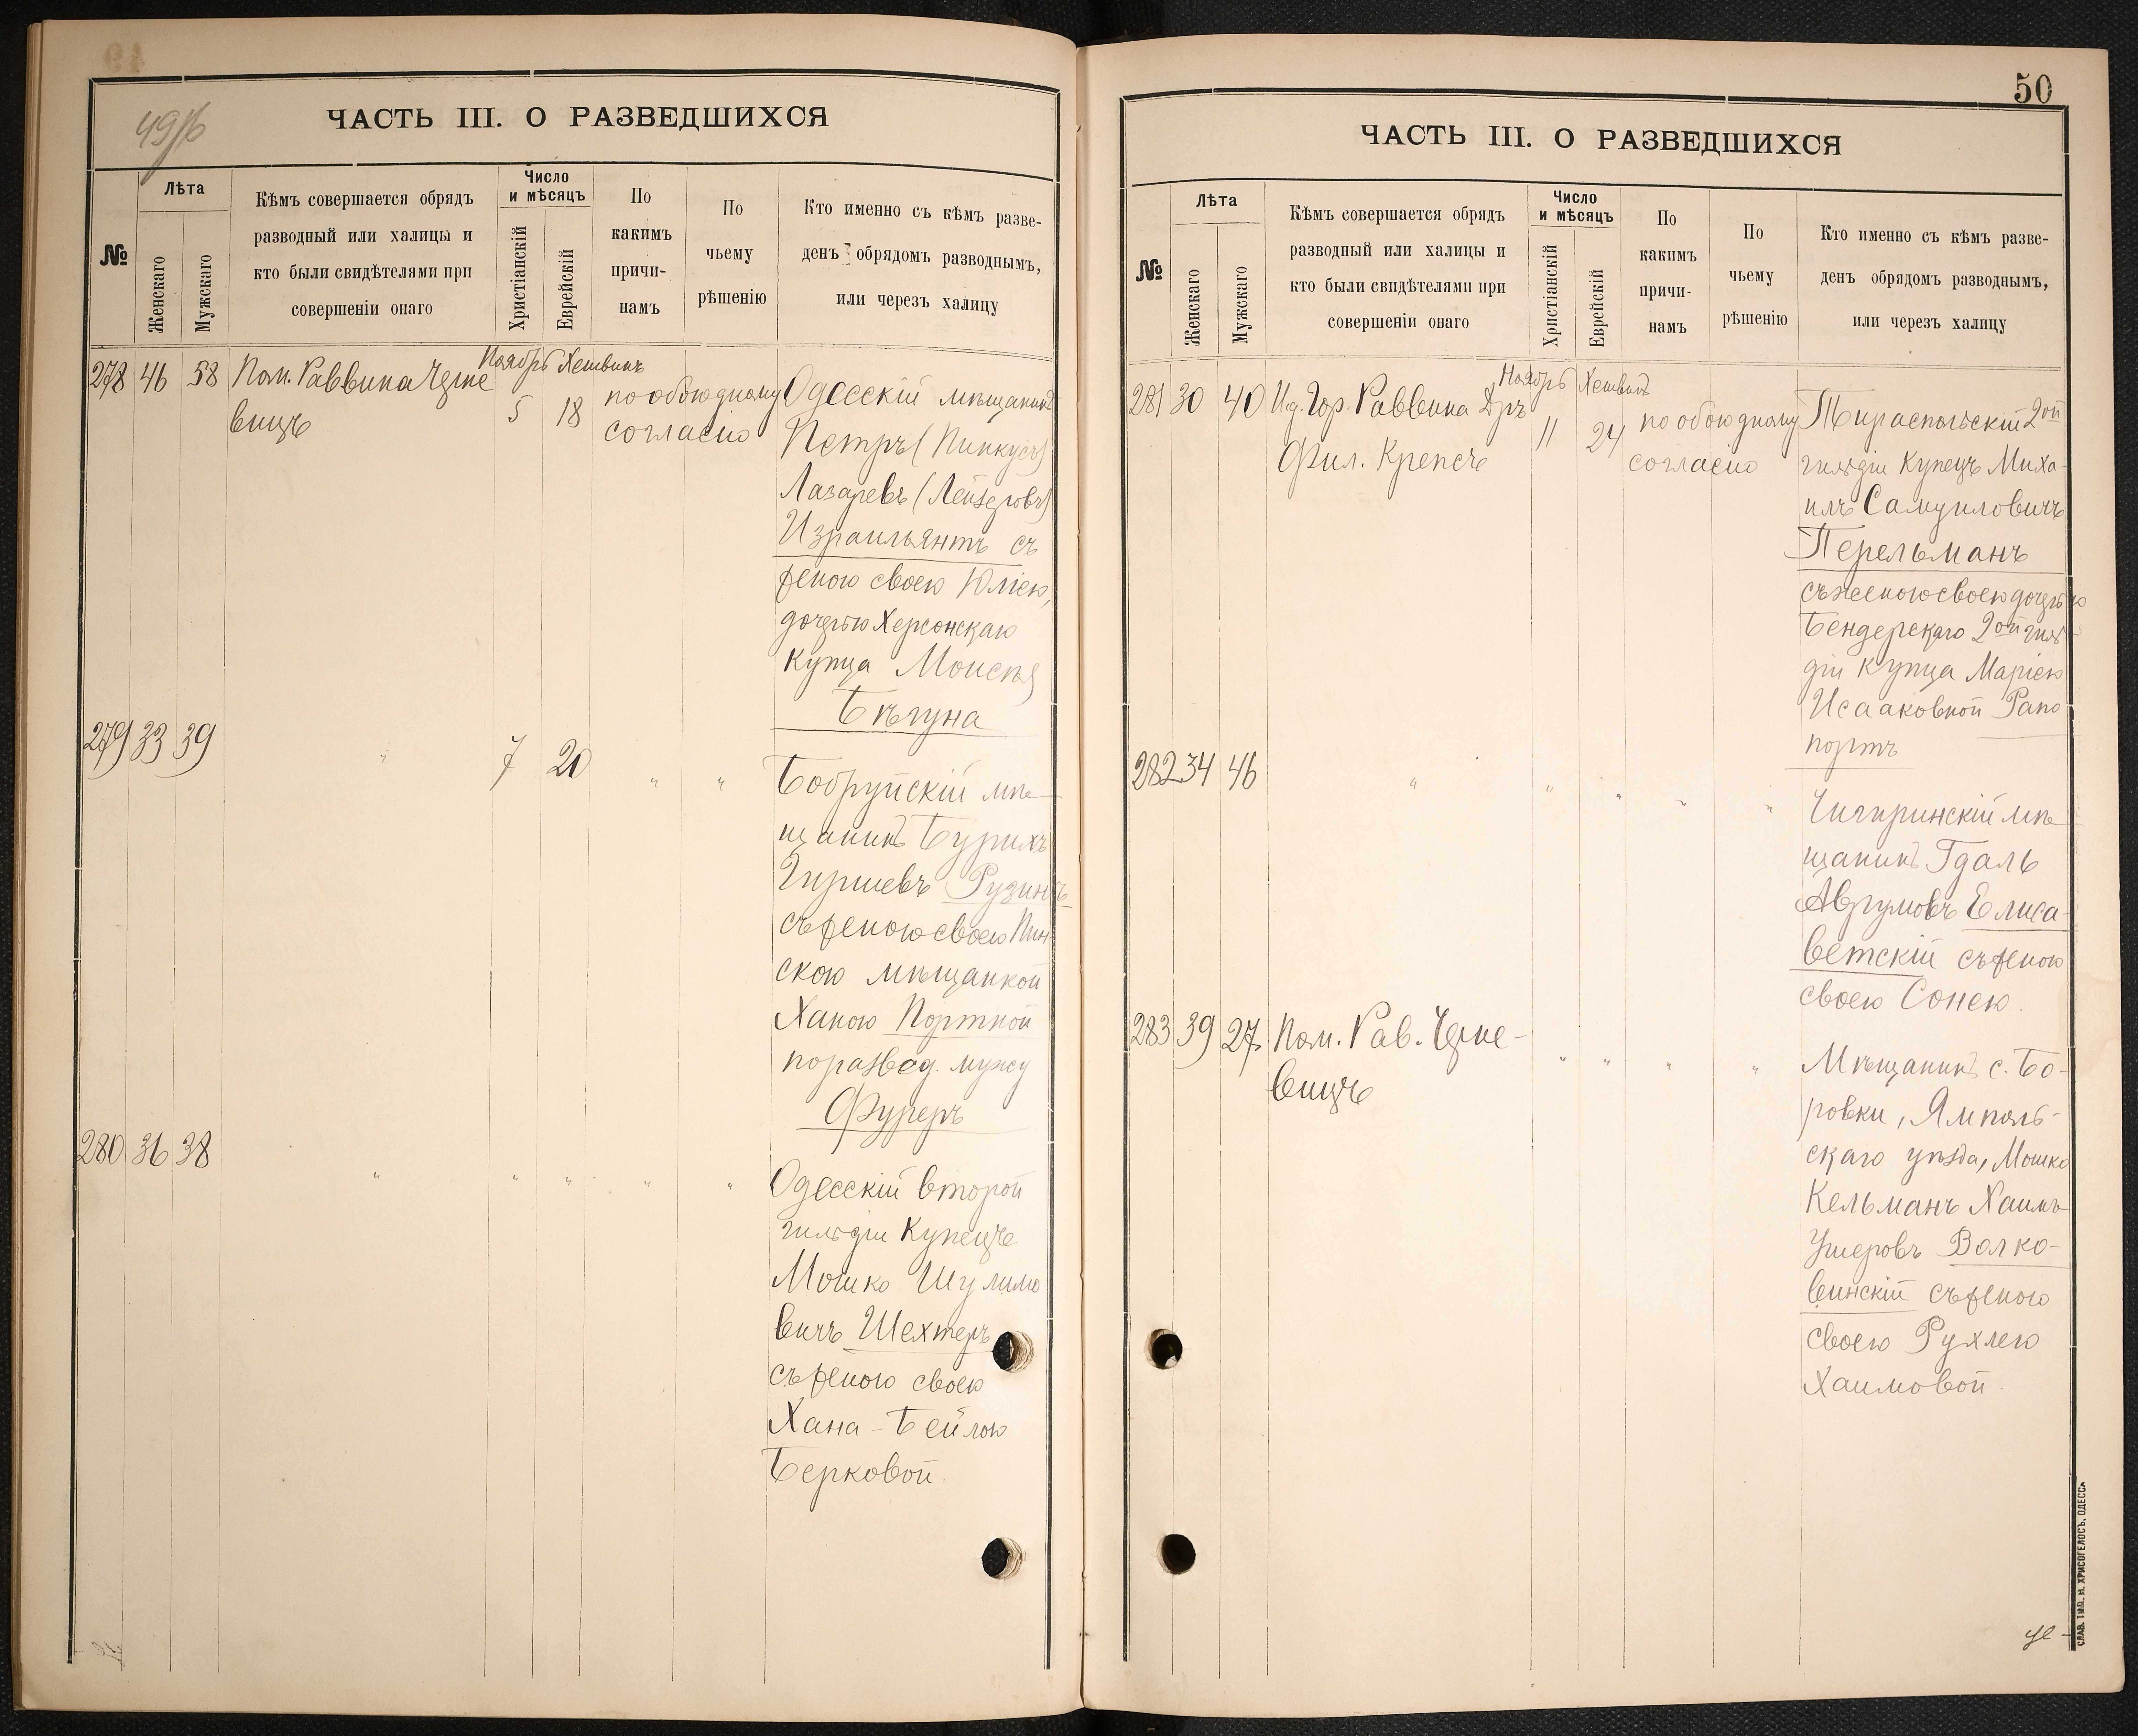 49
ЧАСТЬ III. О РАЗВЕДШИХСЯ
№
Лѣта
Женскаго
Мужскаго
Кѣмъ совершается обрядъ
разводный или халицы и
кто были свидѣтелями при
совершеніи онаго
Число
и мѣсяцъ
Христіанскій
Еврейскій
По
какимъ
причи-
намъ
По
чьему
рѣшенію
Кто именно съ кѣмъ разве-
денъ обрядомъ разводнымъ,
или черезъ халицу
278 46 58 Пом. Раввина Черне
вицъ
Ноябрь Хешванъ
5 18
по обоюдному
согласію
Одесскій мѣщанинъ
Петръ (Пинкусъ)
Лазаревъ (Лейзеровъ)
Израильянтъ съ
женою своею Юліею,
дочерью Херсонскаго
купца Моисея
Бѣгуна
279 33 39 " 7 20 " "
Бобруйскій мѣ
щанинъ Бурихъ
Гиршевъ Рузинъ
съ женою своею Пин-
скою мѣщанкой
Ханою Портной
по развед. мужу
Фуреръ
280 36 38 " " " " "
Одесскій второй
гильдіи Купецъ
Мошко Шулимо
вичъ Шехтеръ
съ женою своею
Хана-Бейлою
Берковой.
50
ЧАСТЬ III. О РАЗВЕДШИХСЯ
№
Лѣта
Женскаго
Мужскаго
Кѣмъ совершается обрядъ
разводный или халицы и
кто были свидѣтелями при
совершеніи онаго
Число
и мѣсяцъ
Христіанскій
Еврейскій
По
какимъ
причи-
намъ
По
чьему
рѣшенію
Кто именно съ кѣмъ разве-
денъ обрядомъ разводнымъ,
или черезъ халицу
281 30 40 И.д. Гор. Раввина Дръ
Фил. Крепсъ
Ноябрь Хешванъ
11 24
по обоюдному
согласію
Тираспольскій 2ой
гильдіи Купецъ Миха-
илъ Самуиловичъ
Перельманъ
съ женою своею дочерью
Бендерскаго 2ой гиль-
діи купца Маріею
Исааковной Рапо
портъ
282 34 46 " " " " "
Чигиринскій мѣ
щанинъ Гдаль
Аврумовъ Елиса-
ветскій съ женою
своею Сонею.
283 39 27. Пом. Рав. Черне-
вицъ
" " " "
Мѣщанинъ с. Бо-
ровки, Ямполь-
скаго уѣзда, Мошко
Кельманъ Хаимъ-
Ушеровъ Волко-
винскій съ женою
своею Рухлею
Хаимовой.
СЛАВ. ТИП. Н. ХРИСОГЕЛОСЪ, ОДЕССА